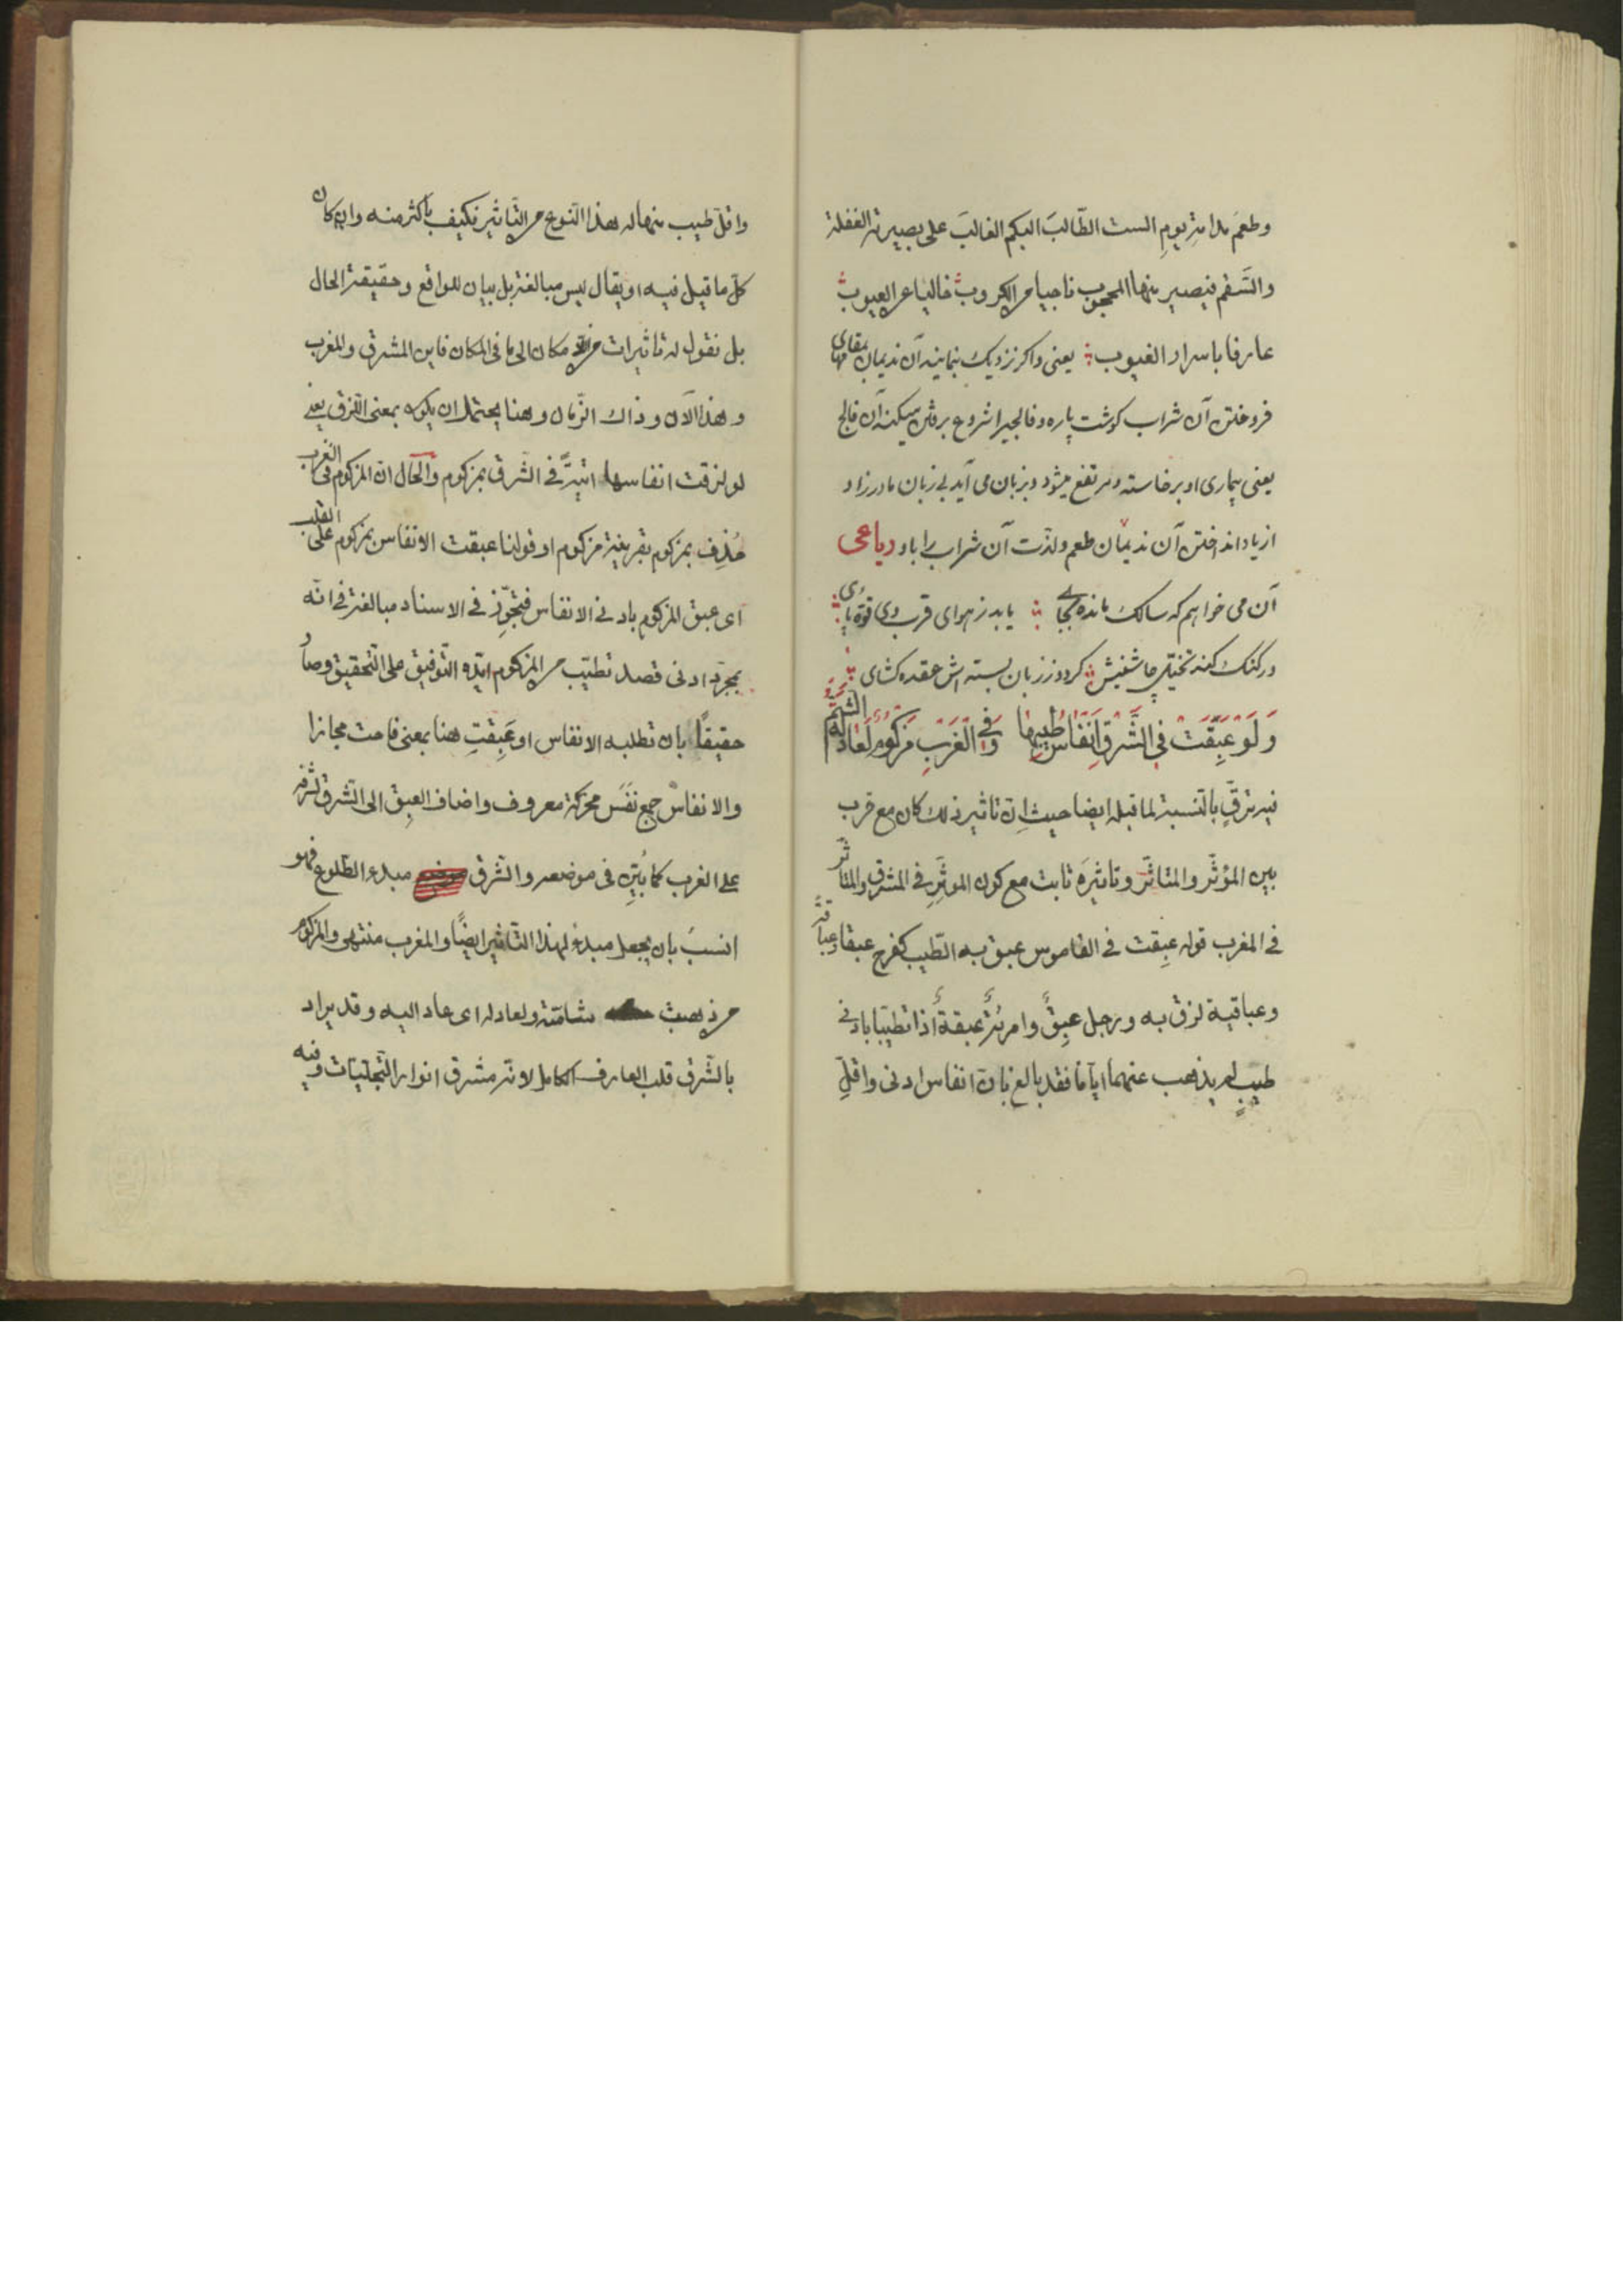 وطعم مدامة يوم الست الطّالبَ البكم الغالبَ على بصيرته الغفلة
والسّقم فيصير منها المحجوب ناجيا من الكروب خاليا عن العيوب
عارفا باسرار الغيوب يعنى واكر نزديك بنمايند آن نديمان بمقامى
فروختن آن شراب كوشت پاره وفالجيرا شروع برفتن ميكند آن فالج
يعنى بيمارى او برخاسته ومرتفع ميشود وبزبان مى آيد بى زبان مادرزاد
از ياد انداختن آن نديمان طعم ولذت آن شراب را باو رباعى
آن مى خواهم كه سالك مانده بجاى يابد ز هواى قرب وى قوة پاى
ور كنك كند تخيل چاشنيش كردد ز زبان بسته اش عقده كشاى
وَلَوْ عَبِقَتْ فِي الشَّرْقِ اَنْفَاسُ طِيبِهَا وَفِي الْغَرْبِ مَزْكُومٌ لَعَادَ لَهُ الشَّمُّ
فيه ترقٍّ بالنّسبة لما قبله ايضا حيث انّ تاثير ذلك كان مع قرب
بين المؤثّر والمتاثّر وتاثيرَه ثابت مع كون الموثّرِ فى المشرق والمتاثّر
فى المغرب قوله عبِقت فى القاموس عبق به الطّيب كفرح عبقا وعباقةً
وعباقية لزق به ورجل عبِقٌ وامرئة عبقةٌ اذا تطيبا بادنى
طيبٍ لم يذهب عنهما ايّاما فقد بالغ بانّ انفاس ادنى واقلِّ
واقلّ طيب منها له هذا النّوع من التّاثير فكيف باكثر منه وان كان
كلّ ما قيل فيه او يقال ليس مبالغة بل بيان للواقع وحقيقة الحال
بل نقول له تاثيرات من مكان الى ما فى المكان فاين المشرق والمغرب
وهذا الآن وذاك الزّمان وهنا يحتمل ان يكون بمعنى اللّزق يعنى
لو لزقت انفاسها فى الشرق بمزكوم والحال انّ المزكوم فى الغرب
حُذِف بمزكوم بقرينة مزكوم او قولنا عبقت الانفاس بمزكوم على القلب
اى عبق المزكوم بادنى الانفاس فتجوّز فى الاسناد مبالغة فى انّه
بمجرّد ادنى قصد تطيّب من المزكوم ايّده التّوفيق على التّحقيق وصار
حقيقًا بان تطلبه الانفاس او عَبِقتِ هنا بمعنى فاحت مجازا
والانفاس جمع نفَس محركة معروف واضاف العبِق الى الشرق لشرفه
على الغرب كما بُيّن فى موضعه والشرق مبدء الطّلوع فهو
انسبَ بان يجعل مبدءً لهذا التّاثير ايضًا والمغرب منتهى والمزكوم
من ذهبت شامّته ولعاد له اى عاد اليه وقد يراد
بالشّرق قلب العارف الكامل لانه مشرق انوار التّجلّيات وفيه